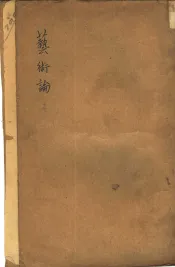 藝術論